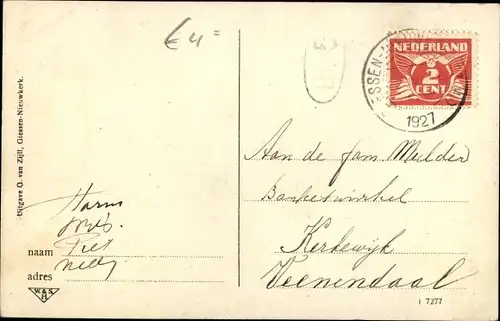 €4=
NEDERLAND
2
CENT
1927
Uitgave G. van Zijll, Giessen-Nieuwkerk.
Aan de fam Mulder
Banketwinkel
Kerkewijk
Veenendaal
Harm
naam Piet
adres Nelly
W&S
H
1 7277